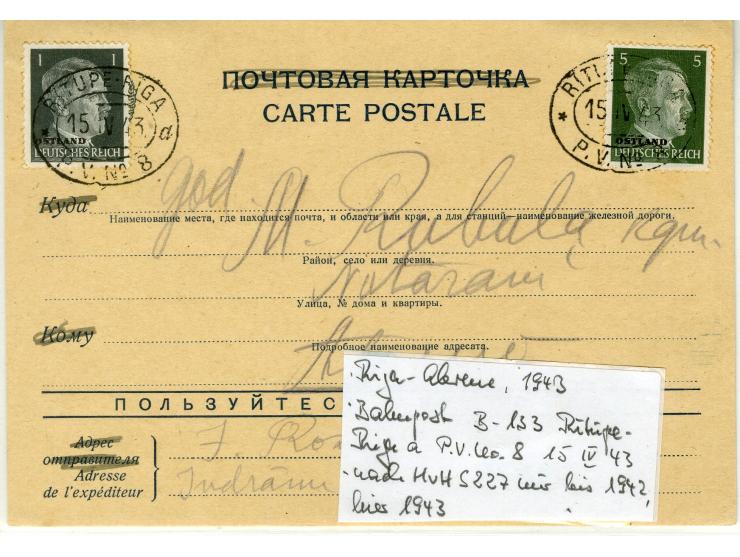 1
5
RITUPE-RIGA
15 IV 43
d
P.V. № 8
OSTLAND
DEUTSCHES REICH
15 IV 43
P.V. №
OSTLAND
DEUTSCHES REICH
ПОЧТОВАЯ КАРТОЧКА
CARTE POSTALE
god
Куда
Наименование места, где находится почта, и области или края, а для станций—наименование железной дороги.
M. Rubuļa kgm.
Район, село или деревня.
Notāram
Улица, № дома и квартиры.
Кому
Подробное наименование адресата.
ПОЛЬЗУЙТЕС
Адрес
отправителя
Adresse
de l'expéditeur
Indrāni
Riga-Abrene, 1943
Bahnpost B-133 Ritupe-
Riga a P.V. No. 8 15 IV 43
nach HvH S227 nur bis 1942,
hier 1943